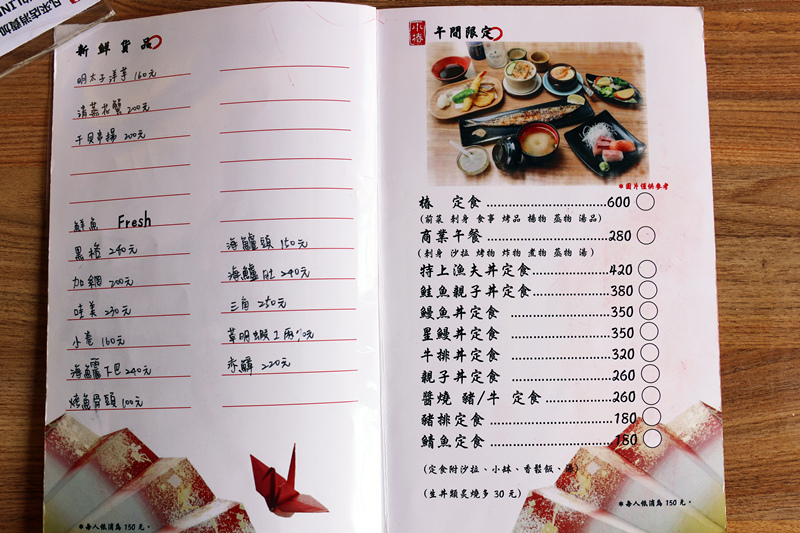 凡來店消費加
LIN
新鮮貨品
明太子洋芋 160元
清蒸花蟹 200元
干貝串揚 200元
鮮魚 Fresh
黑格 240元
加網 200元
哇美 230元
小卷 160元
海鱺下巴 240元
燒魚骨頭 100元
海鱺頭 150元
海鱺肚 240元
三角 250元
草明蝦
赤鯮 220元
*每人低消為 150 元。
小椿
午間限定
*圖片僅供參考
椿 定食 600
(前菜 刺身 食事 烤品 揚物 蒸物 湯品)
商業午餐 280
(刺身 沙拉 烤物 炸物 煮物 蒸物 湯)
特上漁夫丼定食 420
鮭魚親子丼定食 380
鰻魚丼定食 350
星鰻丼定食 350
牛排丼定食 320
親子丼定食 260
醬燒 豬/牛 定食 260
豬排定食 180
鯖魚定食 180
(定食附沙拉、小鉢、香鬆飯、湯)
(生丼類炙燒多 30 元)
*每人低消為 150 元。